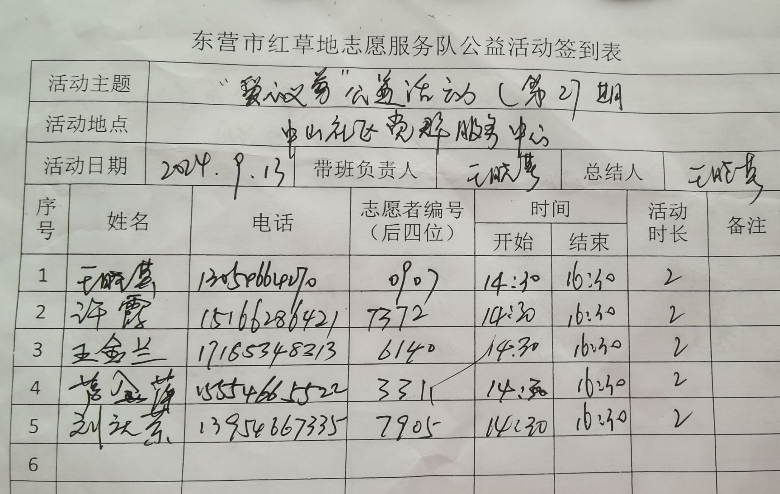 东营市红草地志愿服务队公益活动签到表
活动主题 “爱议剪”公益活动(第27期
活动地点 中山社区党群服务中心
活动日期 2024.9.13 带班负责人 王晓英 总结人 王晓英
序号 姓名 电话 志愿者编号（后四位） 时间 开始 结束 活动时长 备注
1 王晓英 13054664270 0907 14:30 16:30 2
2 许霞 15166286421 7372 14:30 16:30 2
3 王金兰 17165348313 6140 14:30 16:30 2
4 15554665522 3311 14:30 16:30 2
5 13954667335 7905 14:30 16:30 2
6